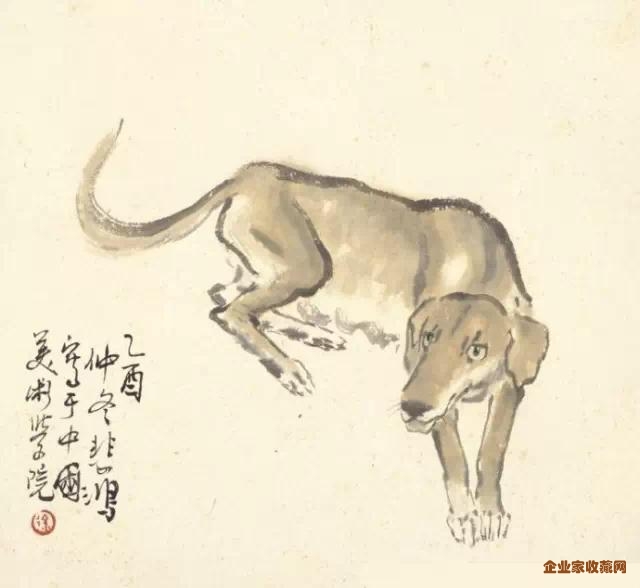 乙酉
仲冬悲鸿
写于中国
美术学院
徐
企业家收藏网